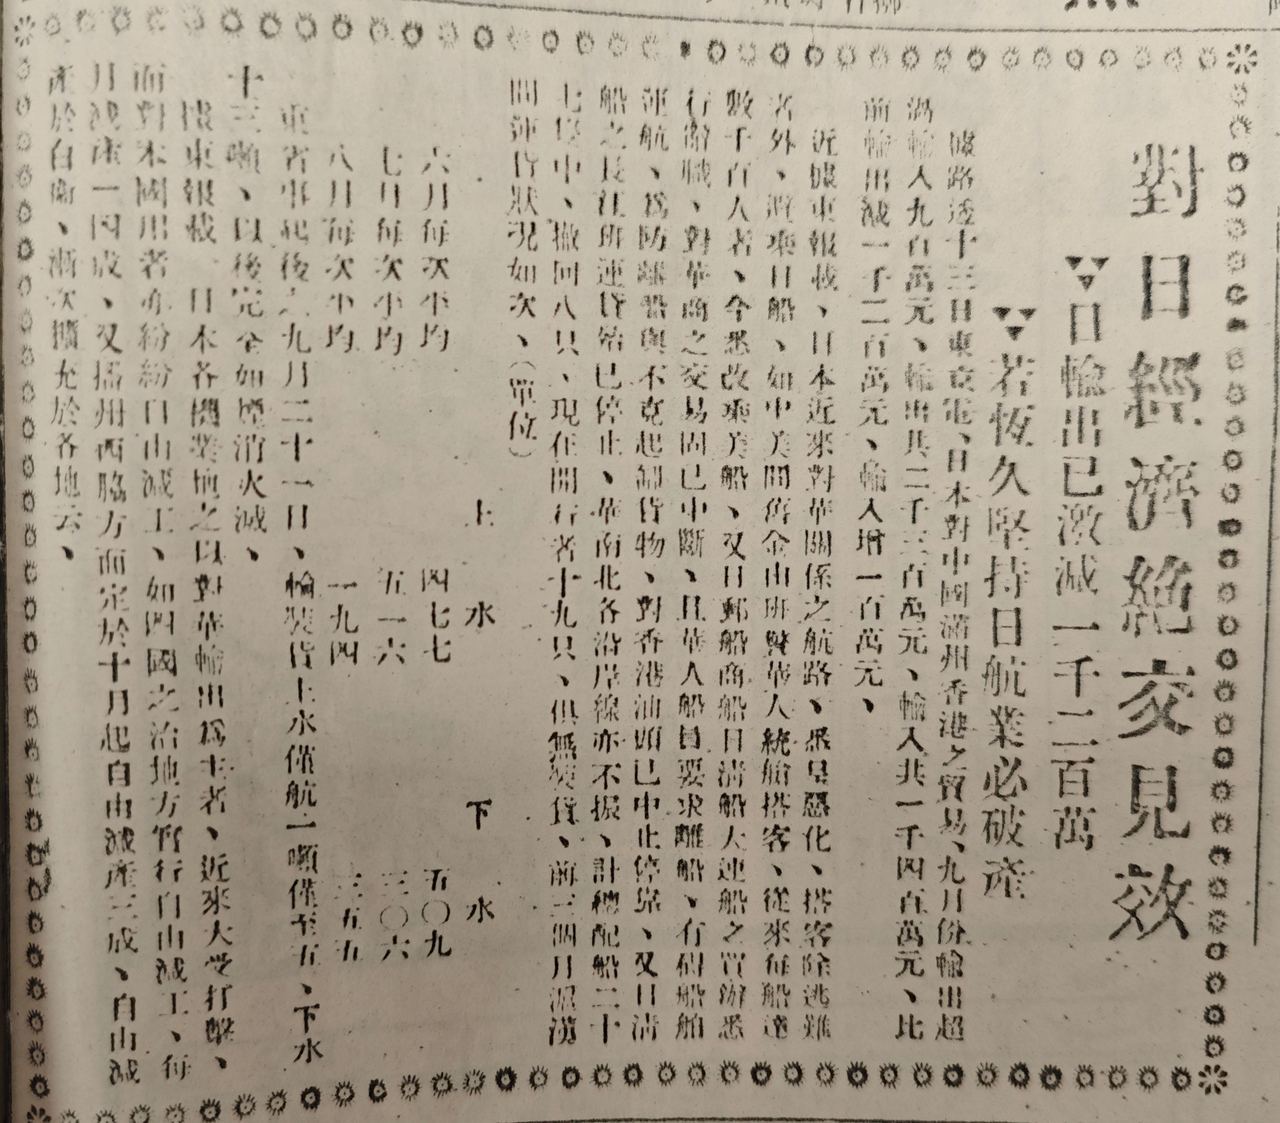 對日經濟絕交見效
▼▼▼日輸出已激減一千二百萬
▼▼▼若恆久堅持日航業必破產
據路透十三日東京電、日本對中國滿州香港之貿易、九月份輸出超
過輸入九百萬元、輸出共二千三百萬元、輸入共一千四百萬元、比
前輸出減一千二百萬元、輸入增一百萬元、
近據東報載、日本近來對華關係之航路、悉呈惡化、搭客除逃難
者外、渡乘日船、如中美間舊金山班賢華人統艙搭客、從來每船達
數千百人者、今悉改乘美船、又日郵船商船日清船大連船之買辦悉
行辭職、對華商之交易固已中斷、且華人船員要求離船、有礙船舶
運航、為防離船與不克起卸貨物、對香港汕頭已中止停靠、又日清
船之長江班運貨殆已停止、華南北各沿岸線亦不振、計總配船二十
七隻中、撤回八只、現在開行者十九只、俱無裝貨、前三個月滬漢
間運貨狀況如次、（單位）
上水 下水
六月每次平均 四七七 五〇九
七月每次平均 五一六 三〇六
八月每次平均 一九四 三五五
東省事起後之九月二十一日、輸裝貨上水僅航一噸僅至五、下水
十三噸、以後完全如煙消火滅、
據東報載 日本各機業地之以對華輸出為主者、近來大受打擊、
而對本國用者亦紛紛自由減工、如四國之治地方實行自由減工、每
月減產一四成、又播州西脇方面定於十月起自由減產三成、自由減
產於自衛、漸次擴充於各地云、